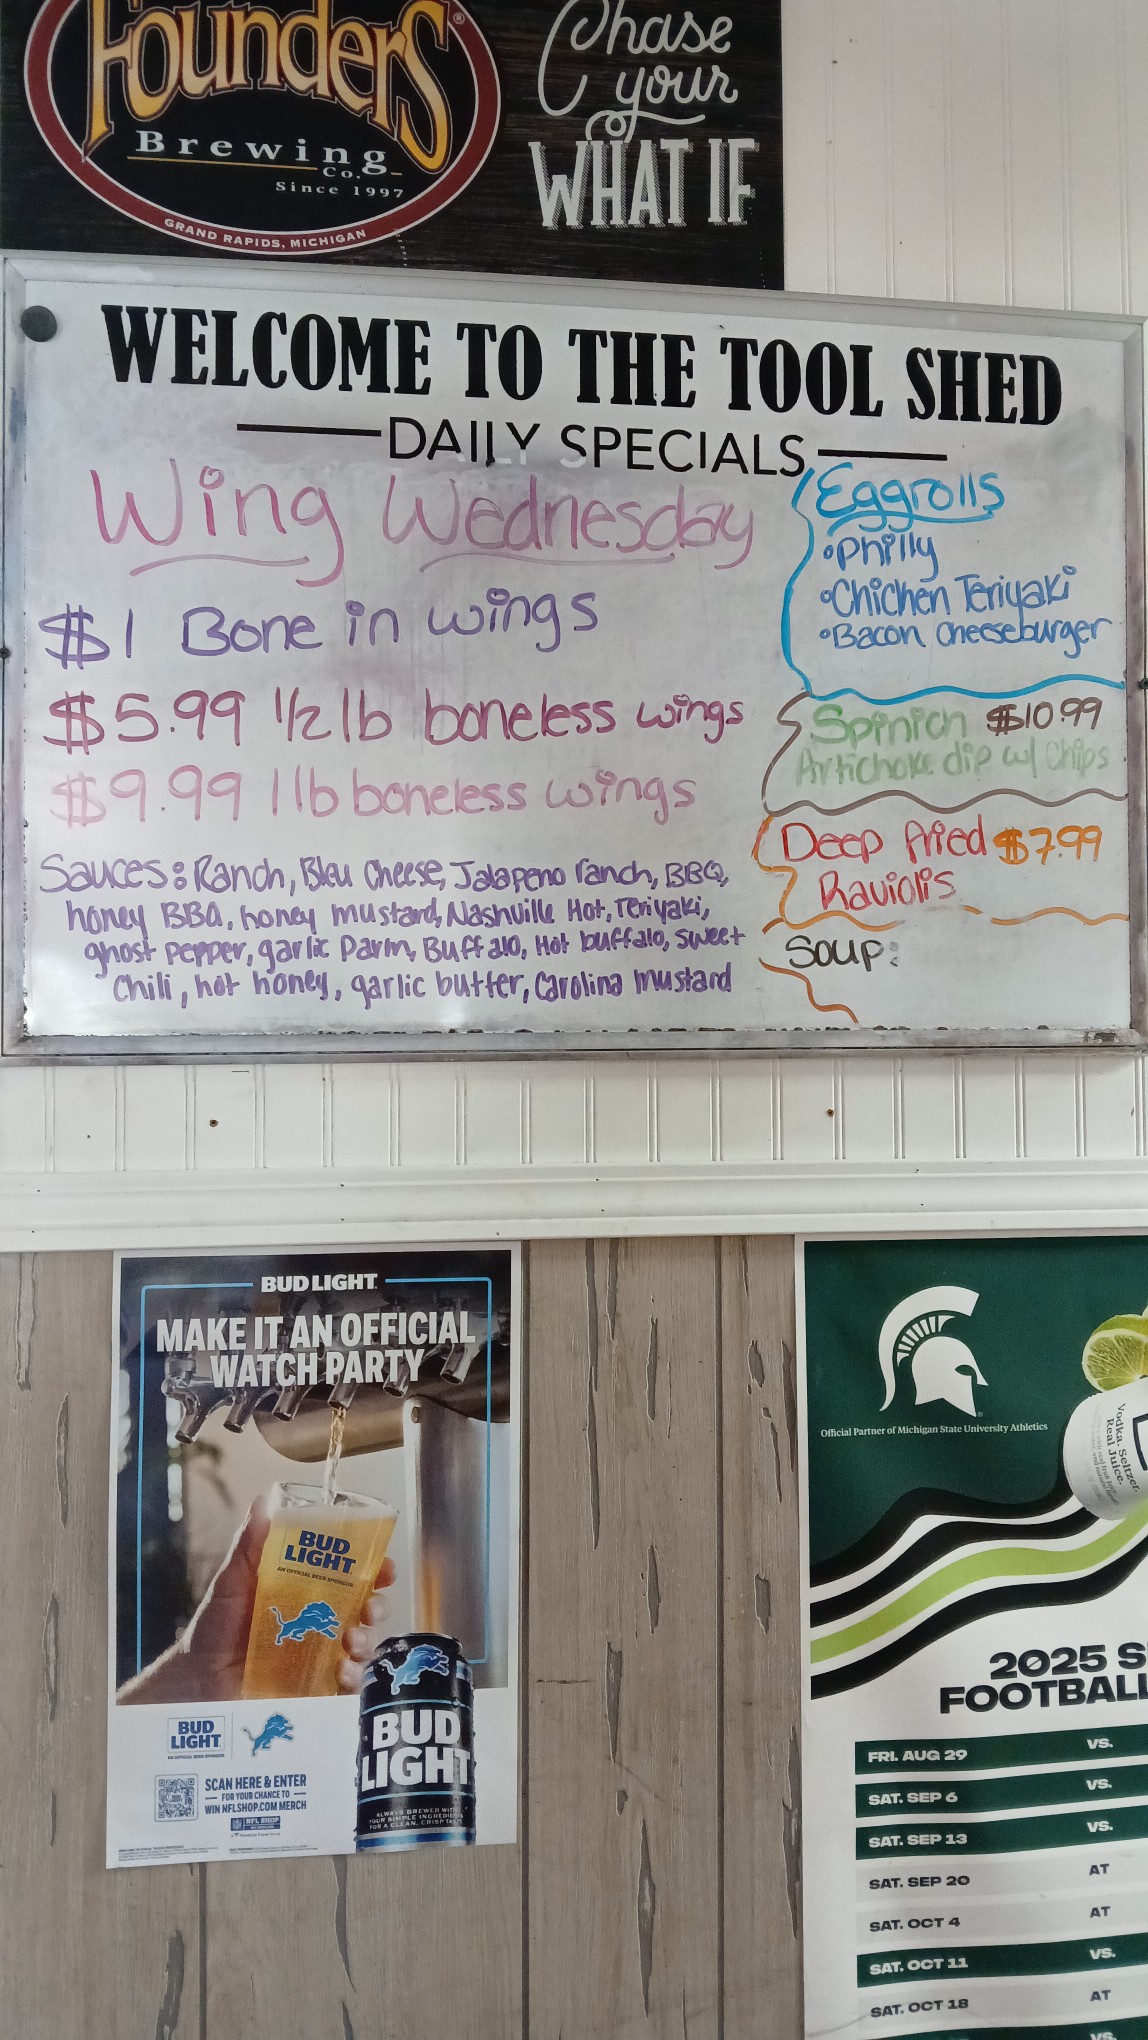 Founders®
Brewing
Co.
Since 1997
GRAND RAPIDS, MICHIGAN
Chase
your
WHAT IF
WELCOME TO THE TOOL SHED
DAILY SPECIALS
Wing Wednesday
$1 Bone in wings
$5.99 1/2 lb boneless wings
$9.99 1 lb boneless wings
Sauces: Ranch, Bleu Cheese, Jalapeno ranch, BBQ,
honey BBQ, honey mustard, Nashville Hot, Teriyaki,
ghost pepper, garlic Parm, Buffalo, Hot buffalo, sweet
Chili, hot honey, garlic butter, Carolina mustard
Eggrolls
•Philly
•Chicken Teriyaki
•Bacon Cheeseburger
Spinich $10.99
Artichoke dip w/ Chips
Deep fried $7.99
Raviolis
Soup:
BUD LIGHT
MAKE IT AN OFFICIAL
WATCH PARTY
BUD
LIGHT
AN OFFICIAL BEER SPONSOR
BUD
LIGHT
AN OFFICIAL BEER SPONSOR
SCAN HERE & ENTER
FOR YOUR CHANCE TO
WIN NFLSHOP.COM MERCH
NFL SHOP
BUD
LIGHT
ALWAYS BREWED WITH
FOUR SIMPLE INGREDIENTS
FOR A CLEAN, CRISP TASTE
Official Partner of Michigan State University Athletics
Vodka. Seltzer.
Real Juice.
2025 S
FOOTBALL
FRI. AUG 29 VS.
SAT. SEP 6 VS.
SAT. SEP 13 VS.
SAT. SEP 20 AT
SAT. OCT 4 AT
SAT. OCT 11 VS.
SAT. OCT 18 AT
VS.